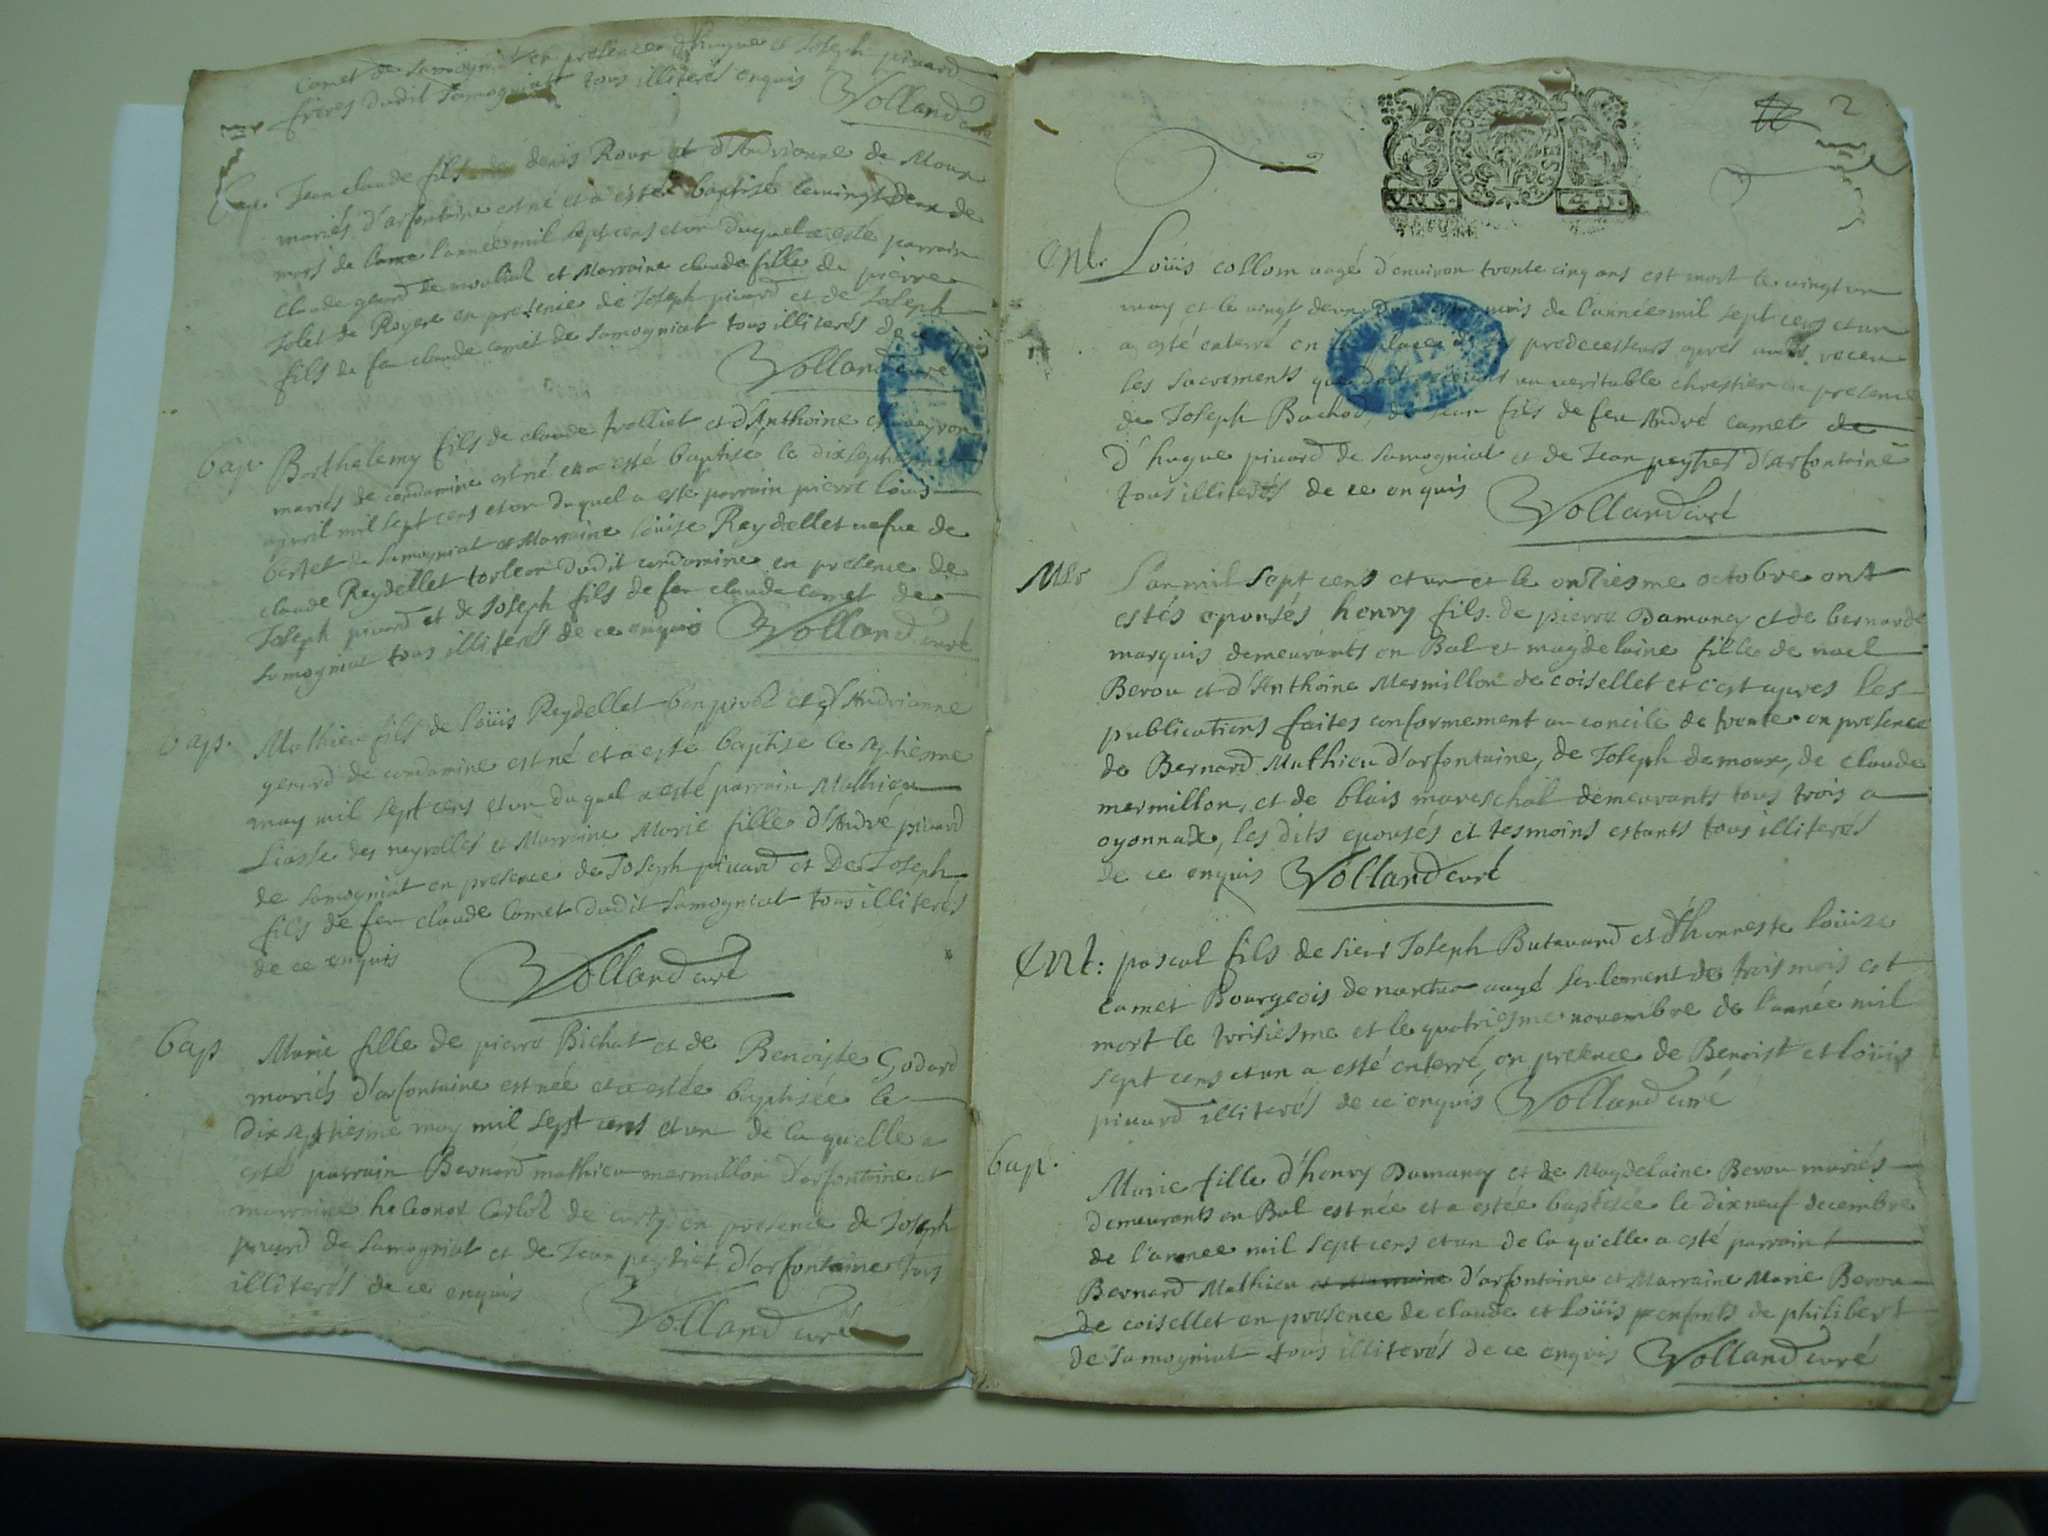 Camet de Samogniat en presence d'hugue et Joseph pinard
freres dudit Samogniat tous illiterés enquis Volland curé
bap. Jean claude fils de denis Roux et d'Andrianne de Moux
mariés d'arfontaine est né et a esté baptisé le vingt deux de
mars de l'année mil sept cens et un duquel a esté parrain
claude et Marraine claude fille de pierre
Jolet de Royere en presence de Joseph pinard et de Joseph
fils de feu claude camet de Samogniat tous illiterés de
Volland curé
bap. Barthelemy fils de claude trolliet et d'Anthoine
mariés de condamine est né et a esté baptisé le dix septiesme
apvril mil sept cens et un duquel a esté parrain pierre louis
bertet de Samogniat et Marraine louise Reydellet vefve de
claude Reydellet dudit condamine en presence de
Joseph pinard et de Joseph fils de feu claude camet de
Samogniat tous illiterés de ce enquis Volland curé
bap. Mathieu fils de louis Reydellet et d'Andrianne
gerard de condamine est né et a esté baptisé le septiesme
may mil sept cens et un duquel a esté parrain Mathieu
Liasse des neyrolles et Marraine Marie fille d'André pinard
de Samogniat en presence de Joseph pinard et de Joseph
fils de feu claude Camet dudit Samogniat tous illiterés
de ce enquis
Volland curé
bap Marie fille de pierre Bichat et de Benoiste Godard
mariés d'arfontaine est née et a estée baptisée le
dix septiesme may mil sept cens et un de la quelle a
esté parrain Bernard mathieu mermillon d'arfontaine et
marraine heleonor en presence de Joseph
pinard de Samogniat et de Jean peytiet d'arfontaine tous
illiterés de ce enquis Volland curé
2
VN S. 4 D.
Ent. Loüis collom aagé d'environ trente cinq ans est mort le vingt un
may et le vingt deux du mois de l'année mil sept cens et un
a esté enterré en predecesseurs apres avoir receu
les sacrements que doit un veritable chrestien en presence
de Joseph Bachod, de Jean fils de feu André camet de
d'hugue pinard de Samogniat et de Jean peytiet d'arfontaine
tous illiterés de ce enquis Volland curé
Mar L'an mil sept cens et un et le onziesme octobre ont
estés epousés henry fils de pierre Damancy et de bernarde
marquis demeurants en Bal et magdelaine fille de noel
Berou et d'Anthoine Mermillon de coisellet et c'est apres les
publications faites conformement au concile de trente en presence
de Bernard Mathieu d'arfontaine, de Joseph demoux, de claude
mermillon, et de blais mareschal demeurants tous trois a
oyonnax, les dits epousés et tesmoins estants tous illiterés
de ce enquis Volland curé
Ent: pascal fils de sieur Joseph Butavand et d'honneste loüize
camet Bourgeois de nantua aagé seulement de trois mois est
mort le troisiesme et le quatriesme novembre de l'année mil
sept cens et un a esté enterré, en presence de Benoist et loüis
pinard illiterés de ce enquis Volland curé
bap. Marie fille d'henry Damancy et de Magdelaine Berou mariés
demeurants en Bal est née et a estée baptisée le dix neuf decembre
de l'annee mil sept cens et un de la quelle a esté parrain
Bernard Mathieu et Marraine d'arfontaine et Marraine Marie Berou
de coisellet en presence de claude et loüis enfants de philibert
de Samogniat tous illiterés de ce enquis Volland curé